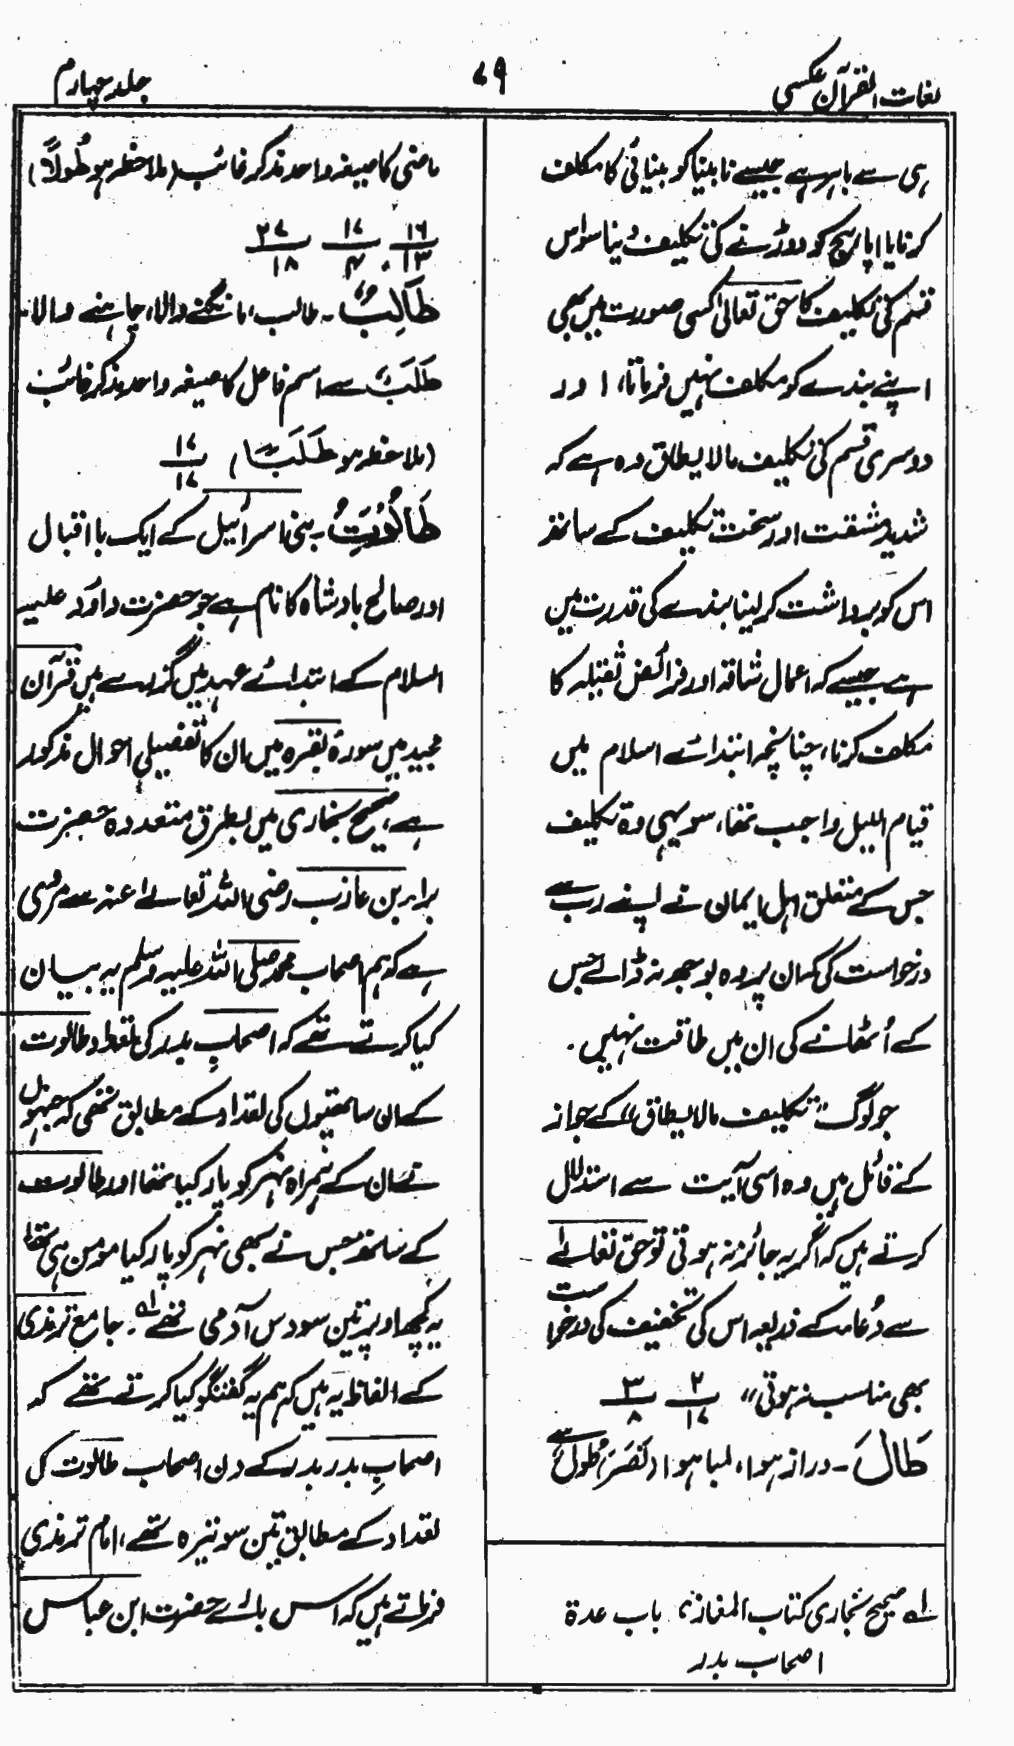 لغات القرآن عکسی
۷۹
جلد چہارم
ہی سے باہر ہے جیسے نابینا کو بینائی کا مکلف
کرنا یا اپاہج کو دوڑنے کی تکلیف دینا سو اس
قسم کی تکلیف کا حق تعالیٰ کسی صورت میں بھی
اپنے بندے کو مکلف نہیں فرماتا، اور
دوسری قسم کی تکلیف مالا یطاق وہ ہے کہ
شدید مشقت اور سخت تکلیف کے ساتھ
اس کو برداشت کر لینا بندے کی قدرت میں
ہے جیسے کہ اعمال شاقہ اور فرائض ثقیلہ کا
مکلف کرنا، چنانچہ ابتدائے اسلام میں
قیام اللیل واجب تھا، سو یہی وہ تکلیف
جس کے متعلق اہل ایمان نے اپنے رب سے
درخواست کی کہ ان پر وہ بوجھ نہ ڈالے جس
کے اُٹھانے کی ان میں طاقت نہیں۔
جو لوگ ”تکلیف مالا یطاق“ کے جواز
کے قائل ہیں وہ اسی آیت سے استدلال
کرتے ہیں کہ اگر یہ جائز نہ ہوتی تو حق تعالےٰ
سے دُعاء کے ذریعہ اس کی تخفیف کی درخواست
بھی مناسب نہ ہوتی“ ۲/۱۷ ۳/۸
طَالَ۔ دراز ہوا، لمبا ہوا (نَصَرَ) طُولٌ سے
لہ صحیح بخاری کتاب المغازی، باب عدة
اصحاب بدر
ماضی کا صیغہ واحد مذکر غائب (ملاحظہ ہو طُولًا)
۱۶/۱۳، ۱۷/۴ ۲۷/۱۸
طَالِبُ۔ طالب، مانگنے والا، چاہنے والا،
طَلَبٌ سے اسم فاعل کا صیغہ واحد مذکر غائب
(ملاحظہ ہو طَلَبًا) ۱۷/۱۷
طَالُوْتُ۔ بنی اسرائیل کے ایک با اقبال
اور صالح بادشاہ کا نام ہے جو حضرت داؤد علیہ
السلام کے ابتدائے عہد میں گزرے ہیں قرآن
مجید میں سورۂ بقرہ میں ان کا تفصیلی احوال مذکور
ہے، صحیح بخاری میں بطرق متعددہ حضرت
براء بن عازب رضی اللہ تعالےٰ عنہ سے مروی
ہے کہ ہم اصحاب محمد صلی اللہ علیہ وسلم یہ بیان
کیا کرتے تھے کہ اصحابِ بدر کی تعداد طالوت
کے ان ساتھیوں کی تعداد کے مطابق تھی کہ جنہوں
نے ان کے ہمراہ نہر کو پار کیا تھا اور طالوت
کے ساتھ جس نے بھی نہر کو پار کیا مومن ہی تھا
یہ کچھ اوپر تین سو دس آدمی تھے لہ۔ جامع ترمذی
کے الفاظ یہ ہیں کہ ہم یہ گفتگو کیا کرتے تھے کہ
اصحابِ بدر بدر کے دن اصحاب طالوت کی
تعداد کے مطابق تین سو تیرہ تھے، امام ترمذی
فرماتے ہیں کہ اس بارے حضرت ابن عباس